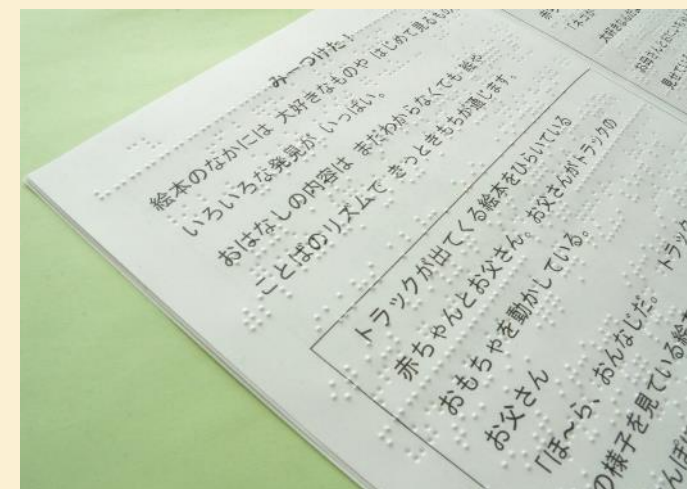 みーつけた!
絵本のなかには 大好きなものや はじめて見るもの
いろいろな発見が いっぱい。
おはなしの内容は まだわからなくても 絵や
ことばのリズムで きっときもちが通じます。
トラックが出てくる絵本をひらいている
赤ちゃんとお父さん。お父さんがトラックの
おもちゃを動かしている。
お父さん
「ほ〜ら、おんなじだ。 トラック
の様子を見ている絵
大好き
お母さんと
見せてい